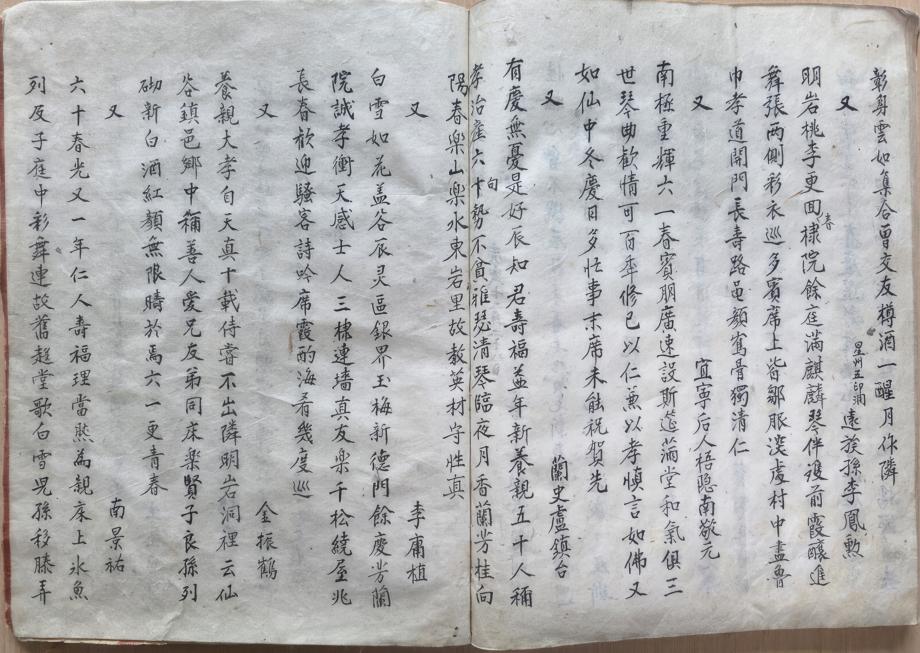 彰身雲如集合曽交友樽酒一醒月作隣
又 星州五印浦 遠族孫李鳳勲
明岩桃李更回春棣院餘庭滿麒麟琴伴渡前霞釀進
舞張両側彩衣巡多賓席上皆鄒服深處村中盡魯
巾孝道開門長壽路邑顔鶴骨獨清仁
又 宜寧后人梧隠南敬元
南極重輝六一春賓朋廣速設斯莚滿堂和氣俱三
世琴曲歡情可百年修己以仁兼以孝慎言如佛又
如仙中冬慶日多忙事末席未能祝賀先
又 蘭史盧鎮台
有慶無憂是好辰知君壽福益年新養親五十人稱
孝治産六旬勢不貧雅瑟清琴臨夜月香蘭芳桂向
陽春樂山樂水東岩里故教英材守性真
又 李庸植
白雪如花盖谷辰灵區銀界玉梅新德門餘慶芳蘭
院誠孝衝天感士人三棣連墻真友楽千松繞屋兆
長春歓迎騒客詩吟席霞酌海肴幾度巡
又 金振鶴
養親大孝自天真十載侍嘗不出隣明岩洞裡云仙
谷鎮邑鄉中稱善人愛兄友弟同床楽賢子良孫列
砌新白酒紅顔無限時於焉六一更青春
又 南景祐
六十春光又一年仁人壽福理當然為親床上氷魚
列反子庭中彩舞連故舊趍堂歌白雪児孫移膝弄